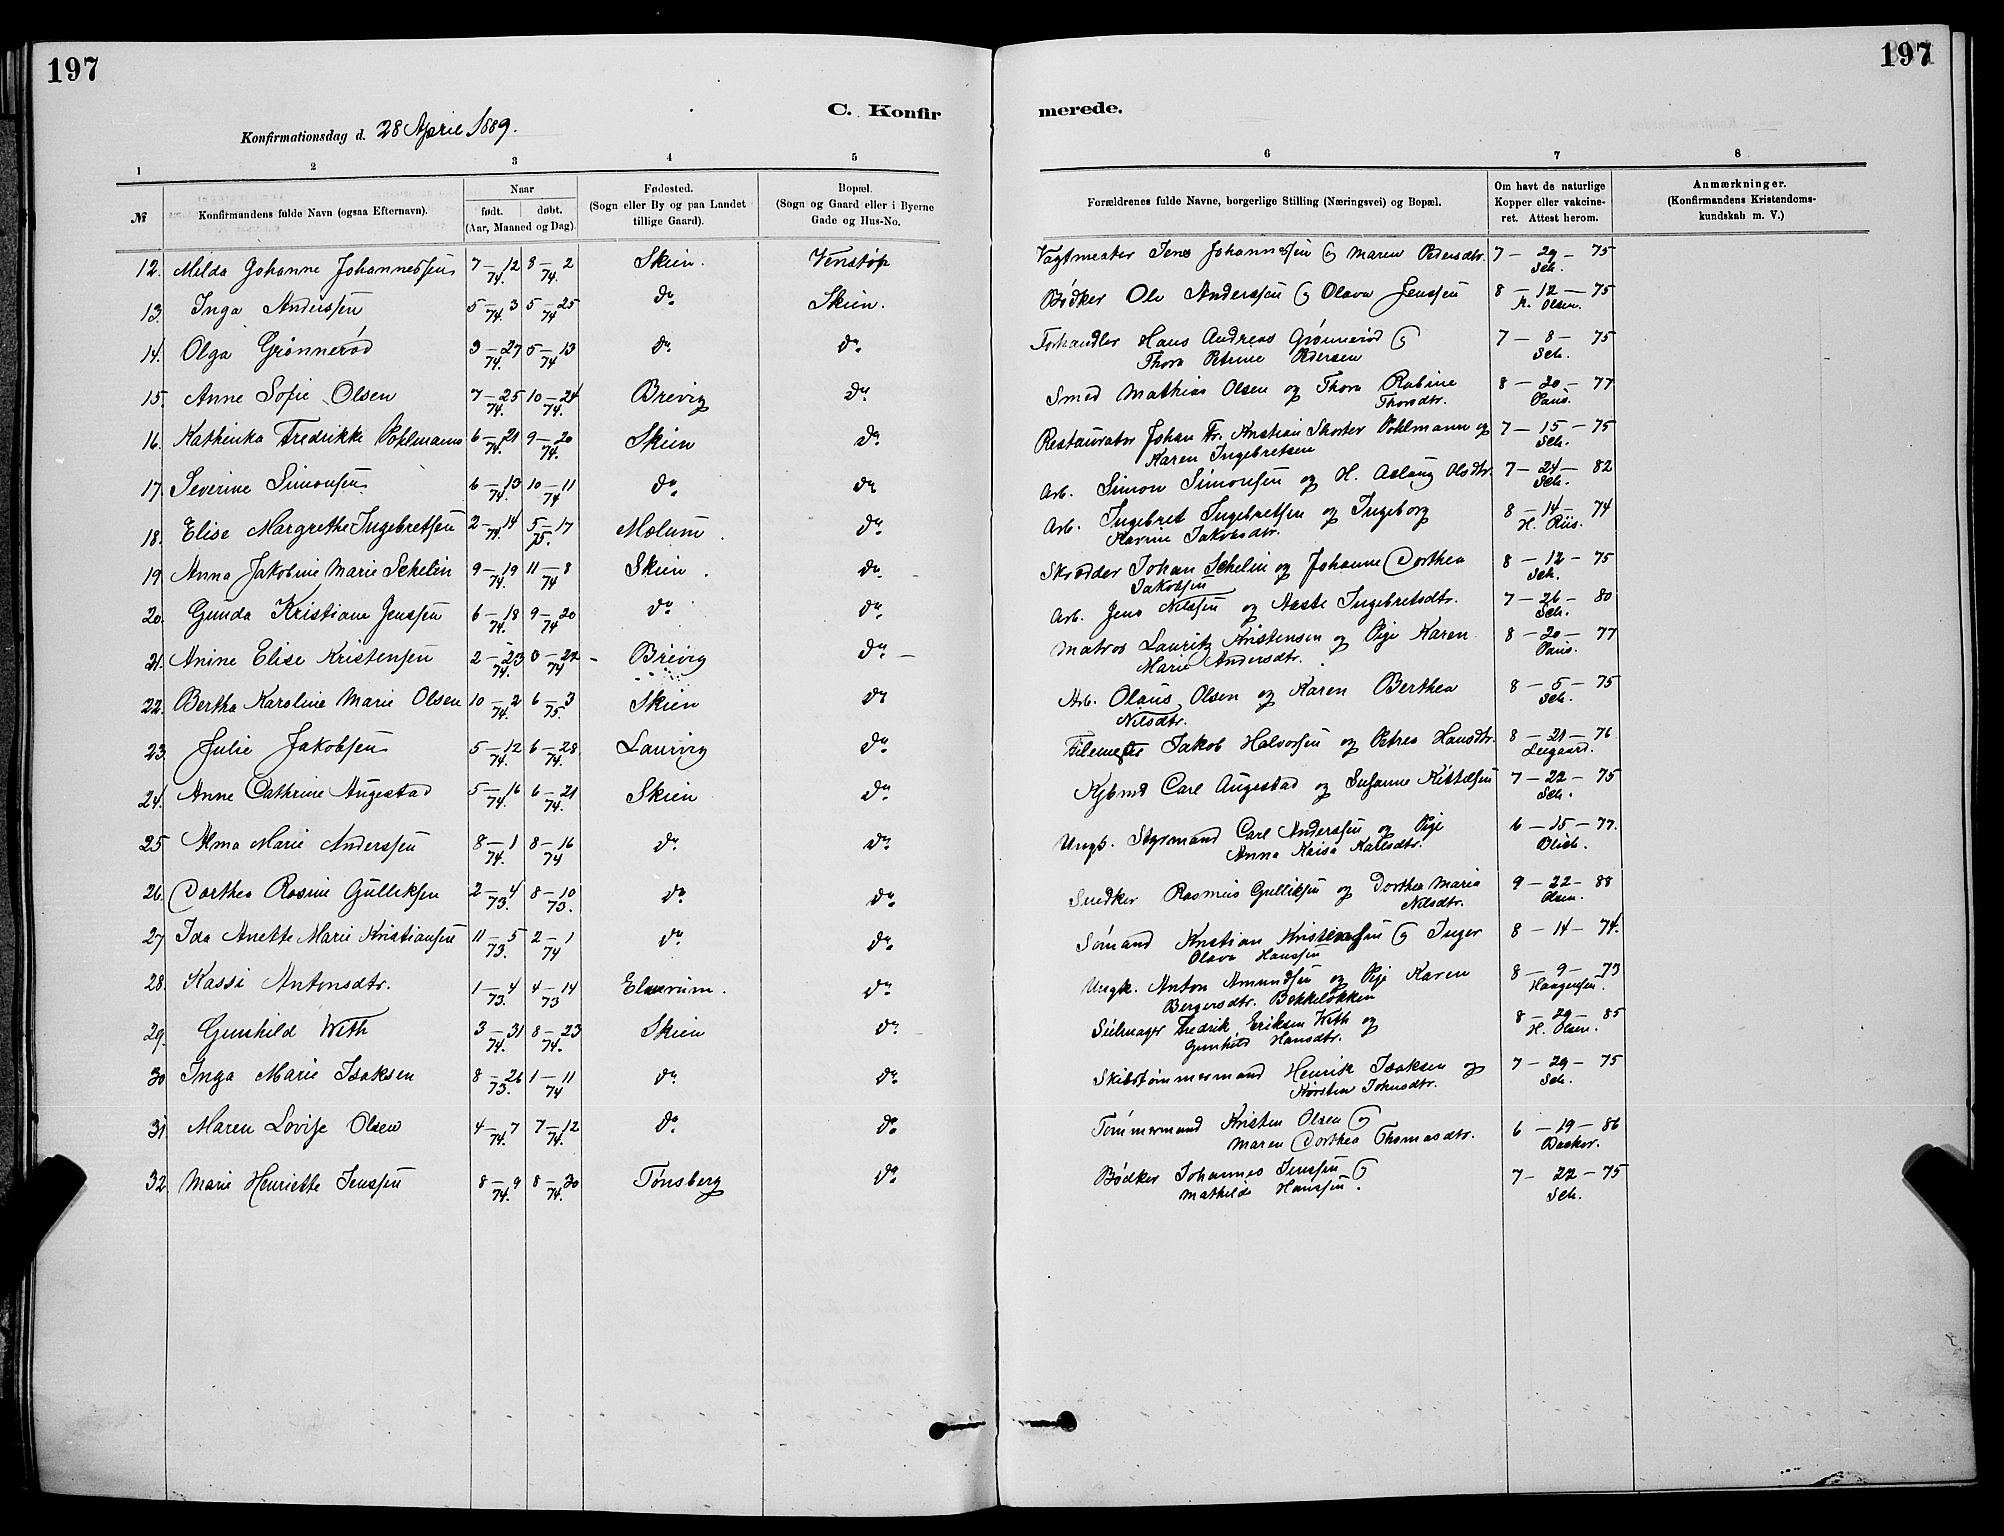 197
197
C. Konfir
merede.
Konfirmationsdag d. 28 April 1889.
1 2 3 4 5
6 7 8
№ Konfirmandens fulde Navn (ogsaa Efternavn). Naar født. døbt. (Aar, Maaned og Dag). Fødested. (Sogn eller By og paa Landet tillige Gaard). Bopæl. (Sogn og Gaard eller i Byerne Gade og Hus-No.
Forældrenes fulde Navne, borgerlige Stilling (Næringsvei) og Bopæl. Om havt de naturlige Kopper eller vakcineret. Attest herom. Anmærkninger. (Konfirmandens Kristendomskundskab m. V.)
12. Milda Johanne Johannessen 7–12 74. 8–2 74. Skien. Venstøp Vagtmester Jens Johannessen og Maren Pedersdtr. 7–29–75 Sch.
13. Inga Anderssen 5–3 74. 5–25 74 do Skien. Bødker Ole Anderssen og Olava Jenssen 8–12–75 Olsen.
14. Olga Grønnerød 3–27 74. 5–13 74 do do Forhandler Hans Andreas Grønnerød og
Thora Petrine Pedersen 7–8–75 Sch.
15. Anne Sofie Olsen 7–25 74. 10–24 74. Brevig do Smed Mathias Olsen og Thora Rabine
Thorsdtr. 8–20–77 Paus.
16. Kathinka Fredrikke Pohlmann 6–21 74. 9–20 74. Skien do Restauratør Johan Fr. Kristian Pohlmann og
Karen Ingebretsen 7–15–75 Sch.
17. Severine Simonsen 6–13 74. 10–11 74 do do Arb. Simon Simonsen og H. Aslaug Olsdtr. 7–24–82 Sch.
18. Elise Margrethe Ingebretsen 2–14 74. 5–17 75. Mælum. do Arb. Ingebret Ingebretsen og Ingeborg
Karine Jakobsdtr. 8–14–74 H. Riis.
19 Anna Jakobine Marie Schelin 9–19 74. 11–8 74 Skien. do Skrædder Johan Schelin og Johanne Dorthea
Jakobsen 8–12–75 Sch.
20. Gunda Kristiane Jenssen 6–18 74. 9–20 74 do do Arb. Jens Nilssen og Aaste Ingebretsdtr. 7–26–80 Sch.
21. Anine Elise Kristensen 2–23 74. 3–22 74 Brevig do Matros Lauritz Kristensen og Pige Karen
Marie Andersdtr. 8–20–77 Paus.
22. Bertha Karoline Marie Olsen 10–2 74. 6–3 75. Skien do Arb. Olaus Olsen og Karen Berthea
Nilsdtr. 8–5–75 Sch.
23. Julie Jakobsen 5–12 74. 6–28 74. Laurvig do Jakob Halvorsen og Petrea Hansdtr. 8–21–76
24. Anne Cathrine Augestad 5–16 74. 6–21 74. Skien do Kjbmd Carl Augestad og Susanne Kittilsen 7–22–75 Sch.
25 Alma Marie Anderssen 8–1 74. 8–16 74 do do Ungk. Styrmand Carl Anderssen og Pige
Anna Kaisa Karlsdtr. 6–15–77.
26. Dorthea Rosine Gulliksen 2–4 73. 8–10 73. do do Snedker Rasmus Gulliksen og Dorthea Maria
Nilsdtr. 9–22–88 Olsen.
27 Ida Anette Marie Kristiansen 11–5 73. 2–1 74 do do Sømand Kristian Kristensen og Inger
Olava Hanssen 8–14–74.
28. Kassi Antonsdtr. 1–4 73. 4–14 73 Elverum. do Ungk. Anton Amundsen og Pige Karen
Bergersdtr. Bekkeløkken 8–9–73
29. Gunhild With 3–31 74. 8–23 74. Skien do Seilmager Fredrik Eriksen With og
Gunhild Hansdtr. 8–29–85 H. Olsen.
30 Inga Marie Isaksen 8–26 73. 1–11 74 do do Skibstømmermand Henrik Isaksen og
Kirsten Johnsdtr. 7–29–75 Sch.
31 Maren Lovise Olsen 4–7 74. 7–12 74. do do Tømmermand Kristen Olsen og
Maren Dorthea Thomasdtr. 6–19–86
32 Marie Henriette Jenssen 8–9 74. 8–30 74. Tønsberg do Bødker Johannes Jenssen og
Mathilde Hanssen. 7–22–75 Sch.